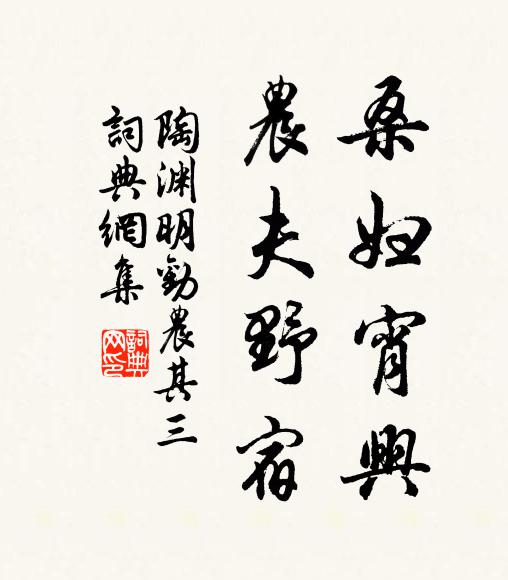 桑妇宵興
農夫野宿
陶渊明勸農其三
詞典網集
詞典
网印